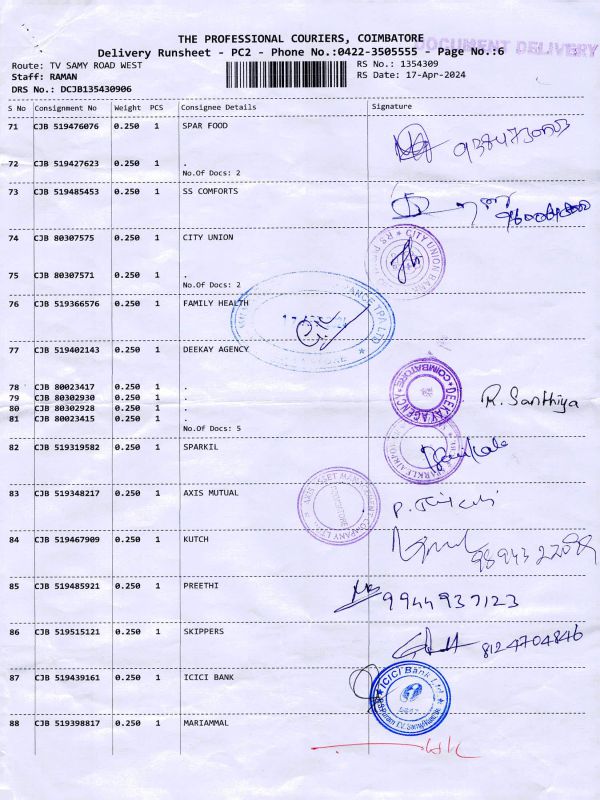 THE PROFESSIONAL COURIERS, COIMBATORE
Delivery Runsheet - PC2 - Phone No.:0422-3505555 - Page No.:6
DOCUMENT DELIVERY
Route: TV SAMY ROAD WEST RS No.: 1354309
Staff: RAMAN RS Date: 17-Apr-2024
DRS No.: DCJB135430906
S No Consignment No Weight PCS Consignee Details Signature
71 CJB 519476076 0.250 1 SPAR FOOD
72 CJB 519427623 0.250 1 .
No.Of Docs: 2
73 CJB 519485453 0.250 1 SS COMFORTS
74 CJB 80307575 0.250 1 CITY UNION
CITY UNION BANK
75 CJB 80307571 0.250 1 .
No.Of Docs: 2
76 CJB 519366576 0.250 1 FAMILY HEALTH
77 CJB 519402143 0.250 1 DEEKAY AGENCY
DEEKAY AGENCY COIMBATORE
R. Santhiya
78 CJB 80023417 0.250 1 .
79 CJB 80302930 0.250 1 .
80 CJB 80302928 0.250 1 .
81 CJB 80023415 0.250 1 .
No.Of Docs: 5
82 CJB 519319582 0.250 1 SPARKIL
83 CJB 519348217 0.250 1 AXIS MUTUAL
AXIS ASSET MANAGEMENT COMPANY LTD
COIMBATORE
84 CJB 519467909 0.250 1 KUTCH
85 CJB 519485921 0.250 1 PREETHI
9944937123
86 CJB 519515121 0.250 1 SKIPPERS
8124704846
87 CJB 519439161 0.250 1 ICICI BANK
ICICI Bank Ltd
88 CJB 519398817 0.250 1 MARIAMMAL